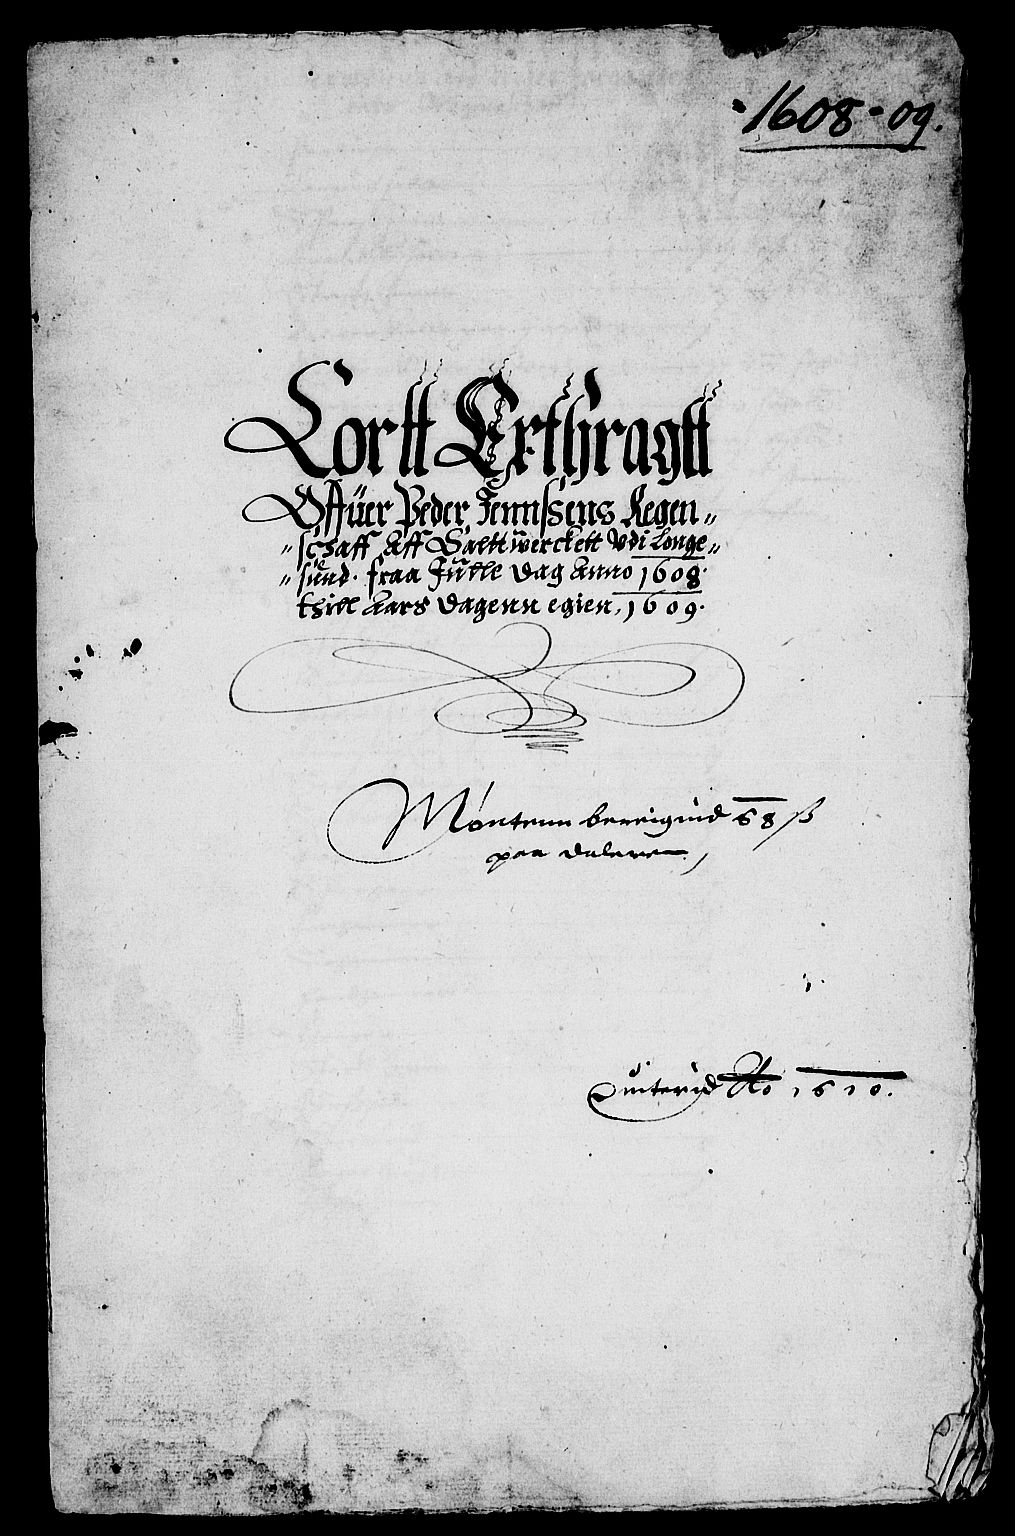 1608-09.
Kortt Exthragtt
Offuer Peder Jennssens Regen„
„schaff Aff Saltt werckett Vdi Longe„
„sund. fraa Julle dag Anno 1608.
thill Aars dagenn egien, 1609.
Møntenn bereignid 68 ß
paa daleren,
Quiterid Ao 1610.